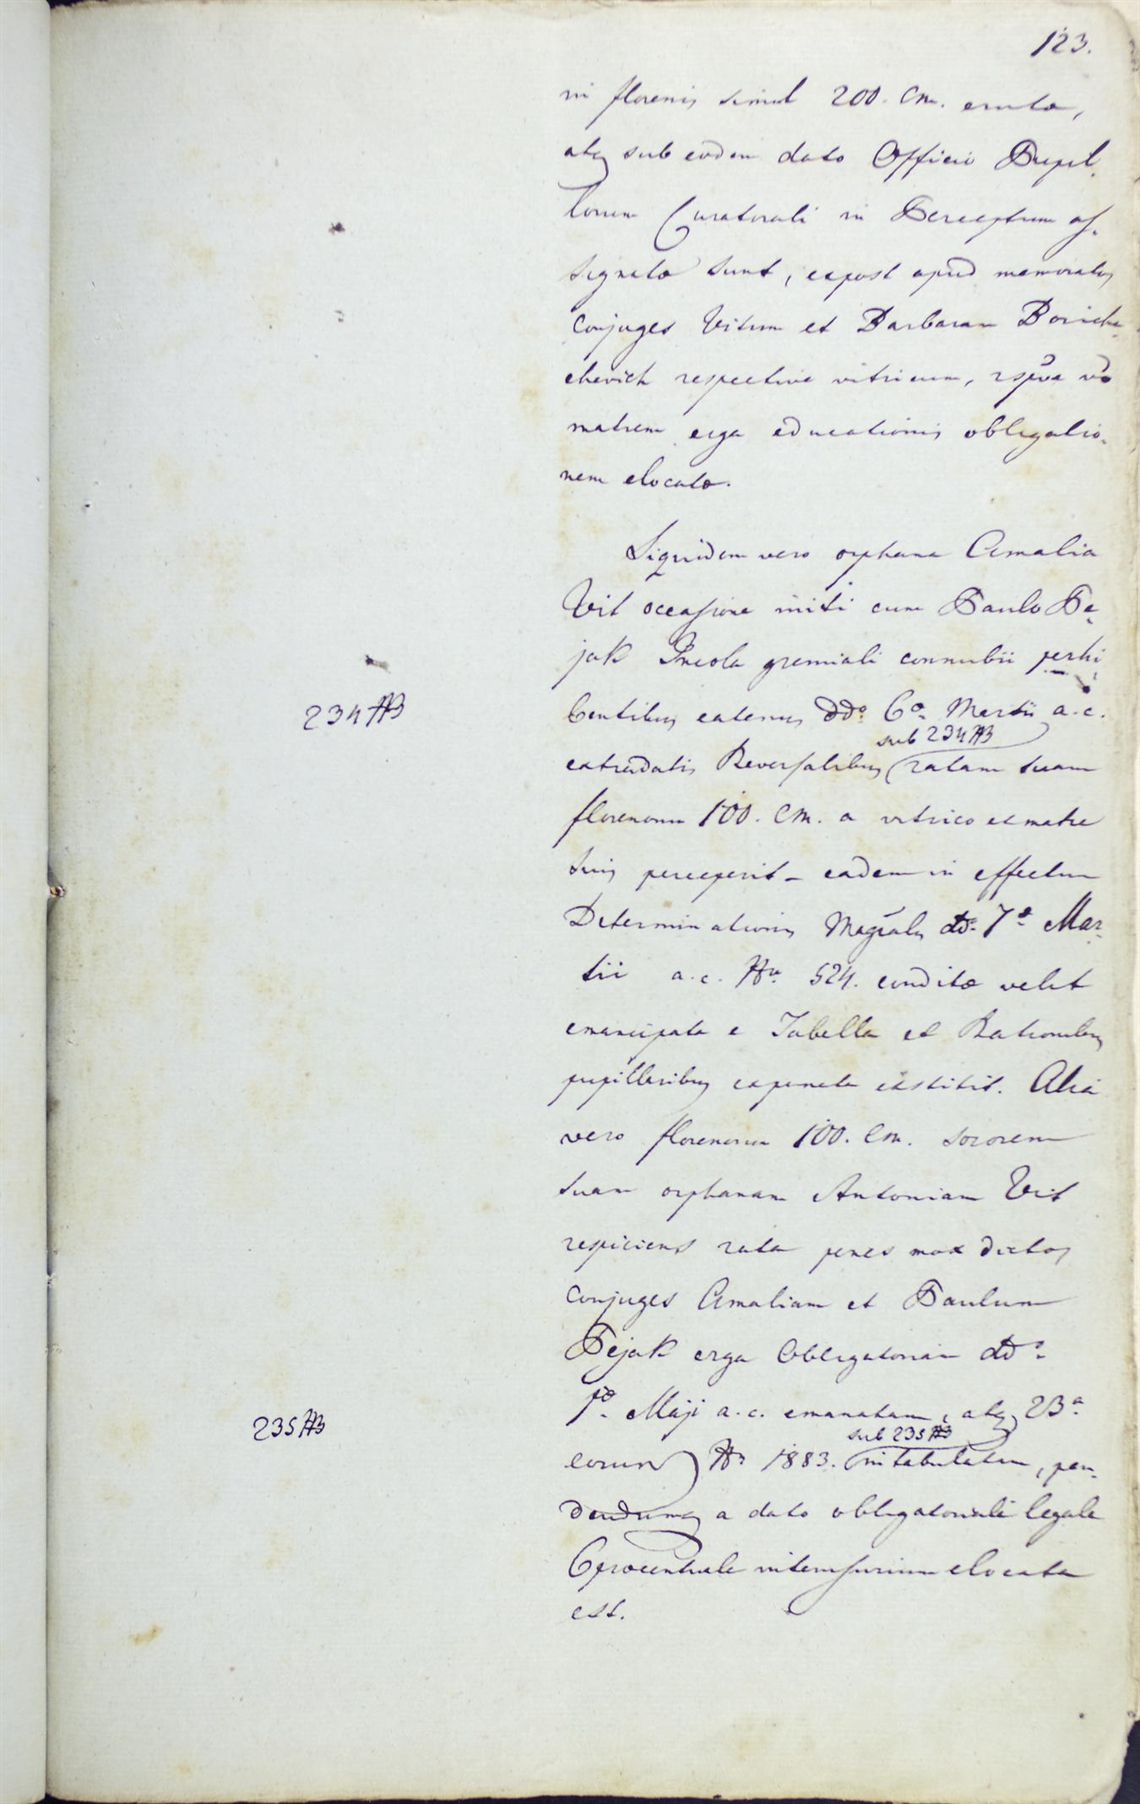 123.
in florenis simul 200. Cm. eruta,
atq sub eodem dato Officio Pupil-
lorum Curatorali in Perceptum as-
signata sunt, expost apud memoratos
Conjuges Vitum et Barbaram Boriche-
chevich respective vitricum, rspve vo
matrem erga educationis obligatio-
nem elocata.
Siquidem vero orphana Amalia
Vit occasione initi cum Paulo Pe-
jak Incola gremiali connubii perhi-
234 AB
bentibus eatenus ddo 6a Martii a.c.
sub 234 AB
extradatis Reversalibus ratam suam
florenorum 100. Cm. a vitrico et matre
suis perceperit – eadem in effectum
Determinationis Magralis ddo 7a Mar-
tii a.c. No 524. condita velut
emancipata e Tabella et Rationibus
pupillaribus expuncta exstitit. Alia
vero florenorum 100. Cm. sororem
suam orphanam Antoniam Vit
respiciens rata penes mox dictos
Conjuges Amaliam et Paulum
Pejak erga Obligatoriam ddo
1a Maji a.c. emanatam, atq 23a
235 AB
sub 235 AB
eorum No 1883. intabulatam, pen-
dendumq a dato obligatoriali legale
6procentuale interusurium elocata
est.